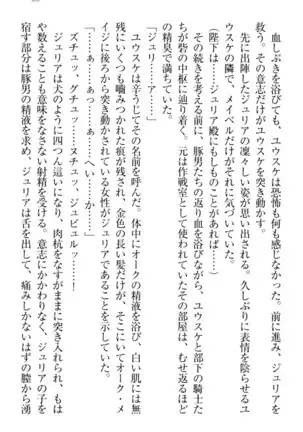 血しぶきを浴びても、ユウスケは恐怖も何も感じなかった。前に進み、ジュリアを
救う。その意志だけがユウスケを突き動かす。
先に出陣したジュリアの凛々しい姿が思い出される。久しぶりに表情を陰らせるユ
ウスケの隣で、メイベルだけがそれに気づいていた。
(陛下は……ジュリア殿にもしものことがあれば……)
その続きを考える前に、豚男たちの返り血を浴びながら、ユウスケと部下の騎士た
ちが砦の中枢に辿り着く。元は作戦室として使われていたその部屋は、むせ返るほど
の精臭で満ちていた。
「ジュリ……ア……」
ユウスケは茫然としてその名前を呼んだ。体中にオークの精液を浴び、白い肌には無
残にいくつも嚙みつかれた痕が残され、金色の長い髪だけが、そこにいてオーク・メ
イジに後ろから突き動かされている女性がジュリアであることを示していた。
「……あ……ぁっ……ぁ……へい……か……」
ズチュッ、グチュッ……ヌチュッ、ジュビュルッ……！
ジュリアは犬のように四つん這いになり、肉杭をなすがままに突き入れられ、もは
や数えることも意味をなさない射精を受ける。意志にかかわりなく、ジュリアの子を
宿す部分は豚男の精液を求め、ジュリアは舌を出して、痛みしかないはずの膣から湧